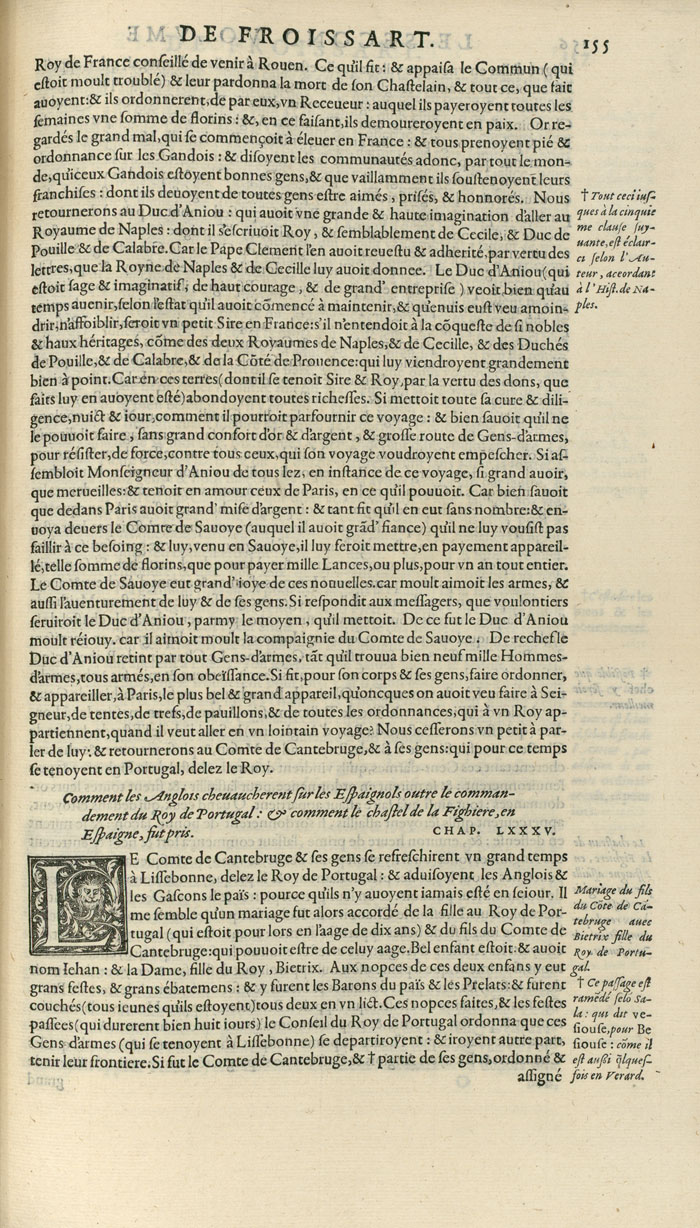 DE FROISSART.
155
Roy de France conseillé de venir à Rouen. Ce qu'il fit: & appaisa le Commun (qui
estoit moult troublé) & leur pardonna la mort de son Chastelain, & tout ce, que fait
auoyent:& ils ordonnerent, de par eux, vn Receueur: auquel ils payeroyent toutes les
semaines vne somme de florins: &, en ce faisant, ils demoureroyent en paix. Or re-
gardés le grand mal, qui se commençoit à éleuer en France: & tous prenoyent pié &
ordonnance sur les Gandois: & disoyent les communautés adonc, par tout le mon-
de, qu'iceux Gandois estoyent bonnes gens, & que vaillamment ils soustenoyent leurs
franchises: dont ils deuoyent de toutes gens estre aimés, prisés, & honnorés. Nous
retournerons au Duc d'Aniou: qui auoit vne grande & haute imagination d'aller au
Royaume de Naples: dont il s'escriuoit Roy, & semblablement de Cecile, & Duc de
Pouille & de Calabre. Car le Pape Clement l'en auoit reuestu & adherité, par vertu des
lettres, que la Royne de Naples & de Cecille luy auoit donnee. Le Duc d'Aniou (qui
estoit sage & imaginatif, de haut courage, & de grand' entreprise) veoit bien qu'au
temps auenir, selon l'estat qu'il auoit cōmencé à maintenir, & qu'enuis eust veu amoin-
drir, n'affoiblir, seroit vn petit Sire en France: s'il n'entendoit à la cōqueste de si nobles
& haux héritages, cōme des deux Royaumes de Naples, & de Cecille, & des Duchés
de Pouille, & de Calabre, & de la Cōté de Prouence: qui luy viendroyent grandement
bien à point. Car en ces terres (dont il se tenoit Sire & Roy, par la vertu des dons, que
faits luy en auoyent esté) abondoyent toutes richesses. Si mettoit toute sa cure & dili-
gence, nuict & iour, comment il pourroit parfournir ce voyage: & bien sauoit qu'il ne
le pouuoit faire, sans grand confort d'or & d'argent, & grosse route de Gens-d'armes,
pour résister, de force, contre tous ceux, qui son voyage voudroyent empescher. Si as-
sembloit Monseigneur d'Aniou de tous lez, en instance de ce voyage, si grand auoir,
que merueilles: & tenoit en amour ceux de Paris, en ce qu'il pouuoit. Car bien sauoit
que dedans Paris auoit grand' mise d'argent: & tant fit qu'il en eut sans nombre: & en-
uoya deuers le Comte de Sauoye (auquel il auoit grād' fiance) qu'il ne luy vousist pas
faillir à ce besoing: & luy, venu en Sauoye, il luy feroit mettre, en payement appareil-
lé, telle somme de florins, que pour payer mille Lances, ou plus, pour vn an tout entier.
Le Comte de Sauoye eut grand' ioye de ces nouuelles. car moult aimoit les armes, &
aussi l'auenturement de luy & de ses gens. Si respondit aux messagers, que voulontiers
seruiroit le Duc d'Aniou, parmy le moyen, qu'il mettoit. De ce fut le Duc d'Aniou
moult réiouy. car il aimoit moult la compaignie du Comte de Sauoye. De rechef le
Duc d'Aniou retint par tout Gens-d'armes, tāt qu'il trouua bien neuf mille Hommes-
d'armes, tous armés, en son obeïssance. Si fit, pour son corps & ses gens, faire ordonner,
& appareiller, à Paris, le plus bel & grand appareil, qu'oncques on auoit veu faire à Sei-
gneur, de tentes, de trefs, de pauillons, & de toutes les ordonnances, qui à vn Roy ap-
partiennent, quand il veut aller en vn lointain voyage. Nous cesserons vn petit à par-
ler de luy: & retournerons au Comte de Cantebruge, & à ses gens: qui pour ce temps
se tenoyent en Portugal, delez le Roy.
† Tout ceci ius-
ques à la cinquie
me clause suy-
uante, est éclair-
ci selon l'Au-
teur, acordant
à l'Hist. de Na-
ples.
Comment les Anglois cheuaucherent sur les Espaignols outre le comman-
dement du Roy de Portugal: & comment le chastel de la Fighiere, en
Espaigne, fut pris. CHAP. LXXXV.
LE Comte de Cantebruge & ses gens se refreschirent vn grand temps
à Lissebonne, delez le Roy de Portugal: & aduisoyent les Anglois &
les Gascons le païs: pource qu'ils n'y auoyent iamais esté en seiour. Il
me semble qu'un mariage fut alors accordé de la fille au Roy de Por-
tugal (qui estoit pour lors en l'aage de dix ans) & du fils du Comte de
Cantebruge: qui pouuoit estre de celuy aage. Bel enfant estoit: & auoit
nom Iehan: & la Dame, fille du Roy, Bietrix. Aux nopces de ces deux enfans y eut
grans festes, & grans ébatemens: & y furent les Barons du païs & les Prelats: & furent
couchés (tous ieunes qu'ils estoyent) tous deux en vn lict. Ces nopces faites, & les festes
passées (qui durerent bien huit iours) le Conseil du Roy de Portugal ordonna que ces
Gens d'armes (qui se tenoyent à Lissebonne) se departiroyent: & iroyent autre part,
tenir leur frontiere. Si fut le Comte de Cantebruge, & † partie de ses gens, ordonné &
assigné
Mariage du fils
du Cōte de Cā-
tebruge auec
Bietrix fille du
Roy de Portu-
gal.
† Ce passage est
ramédé selō Sa-
la: qui dit ve-
siouse, pour Be
siouse: cōme il
est aussi q̄lques-
fois en Verard.